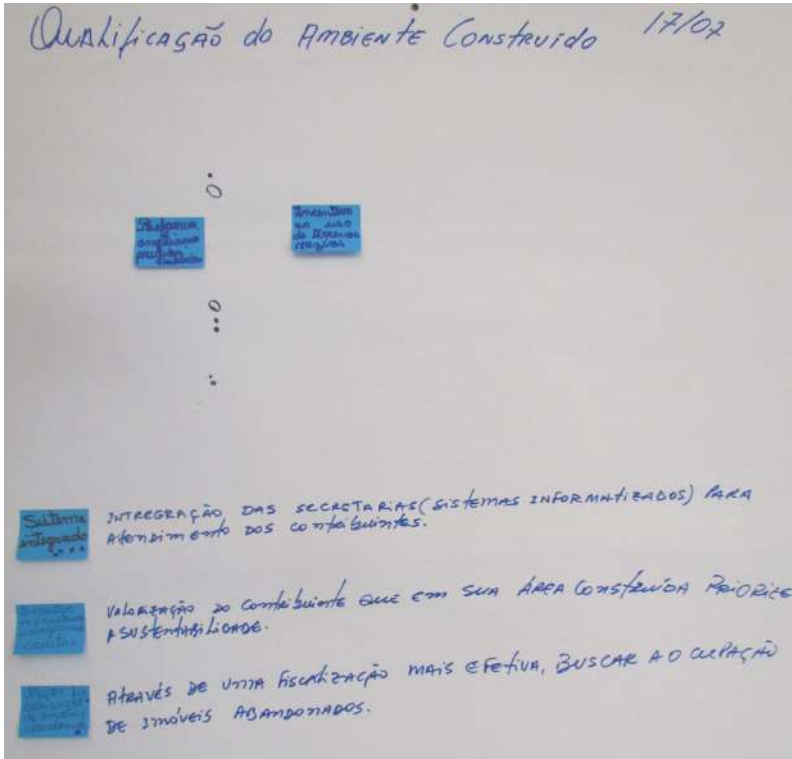 Qualificação do Ambiente Construído 17/07
Reforma
ampliação
prédios
Incentivo
ao uso
de terrenos
vazios
Sistema
integrado
INTREGRAÇÃO DAS SECRETARIAS (SISTEMAS INFORMATIZADOS) PARA
Atendimento DOS contribuintes.
VALORIZAÇÃO DO Contribuinte QUE EM SUA ÁREA CONSTRUÍDA PRIORIZE
A SUSTENTABILIDADE.
ATRAVÉS DE UMA FISCALIZAÇÃO MAIS EFETIVA, BUSCAR A OCUPAÇÃO
DE IMÓVEIS ABANDONADOS.